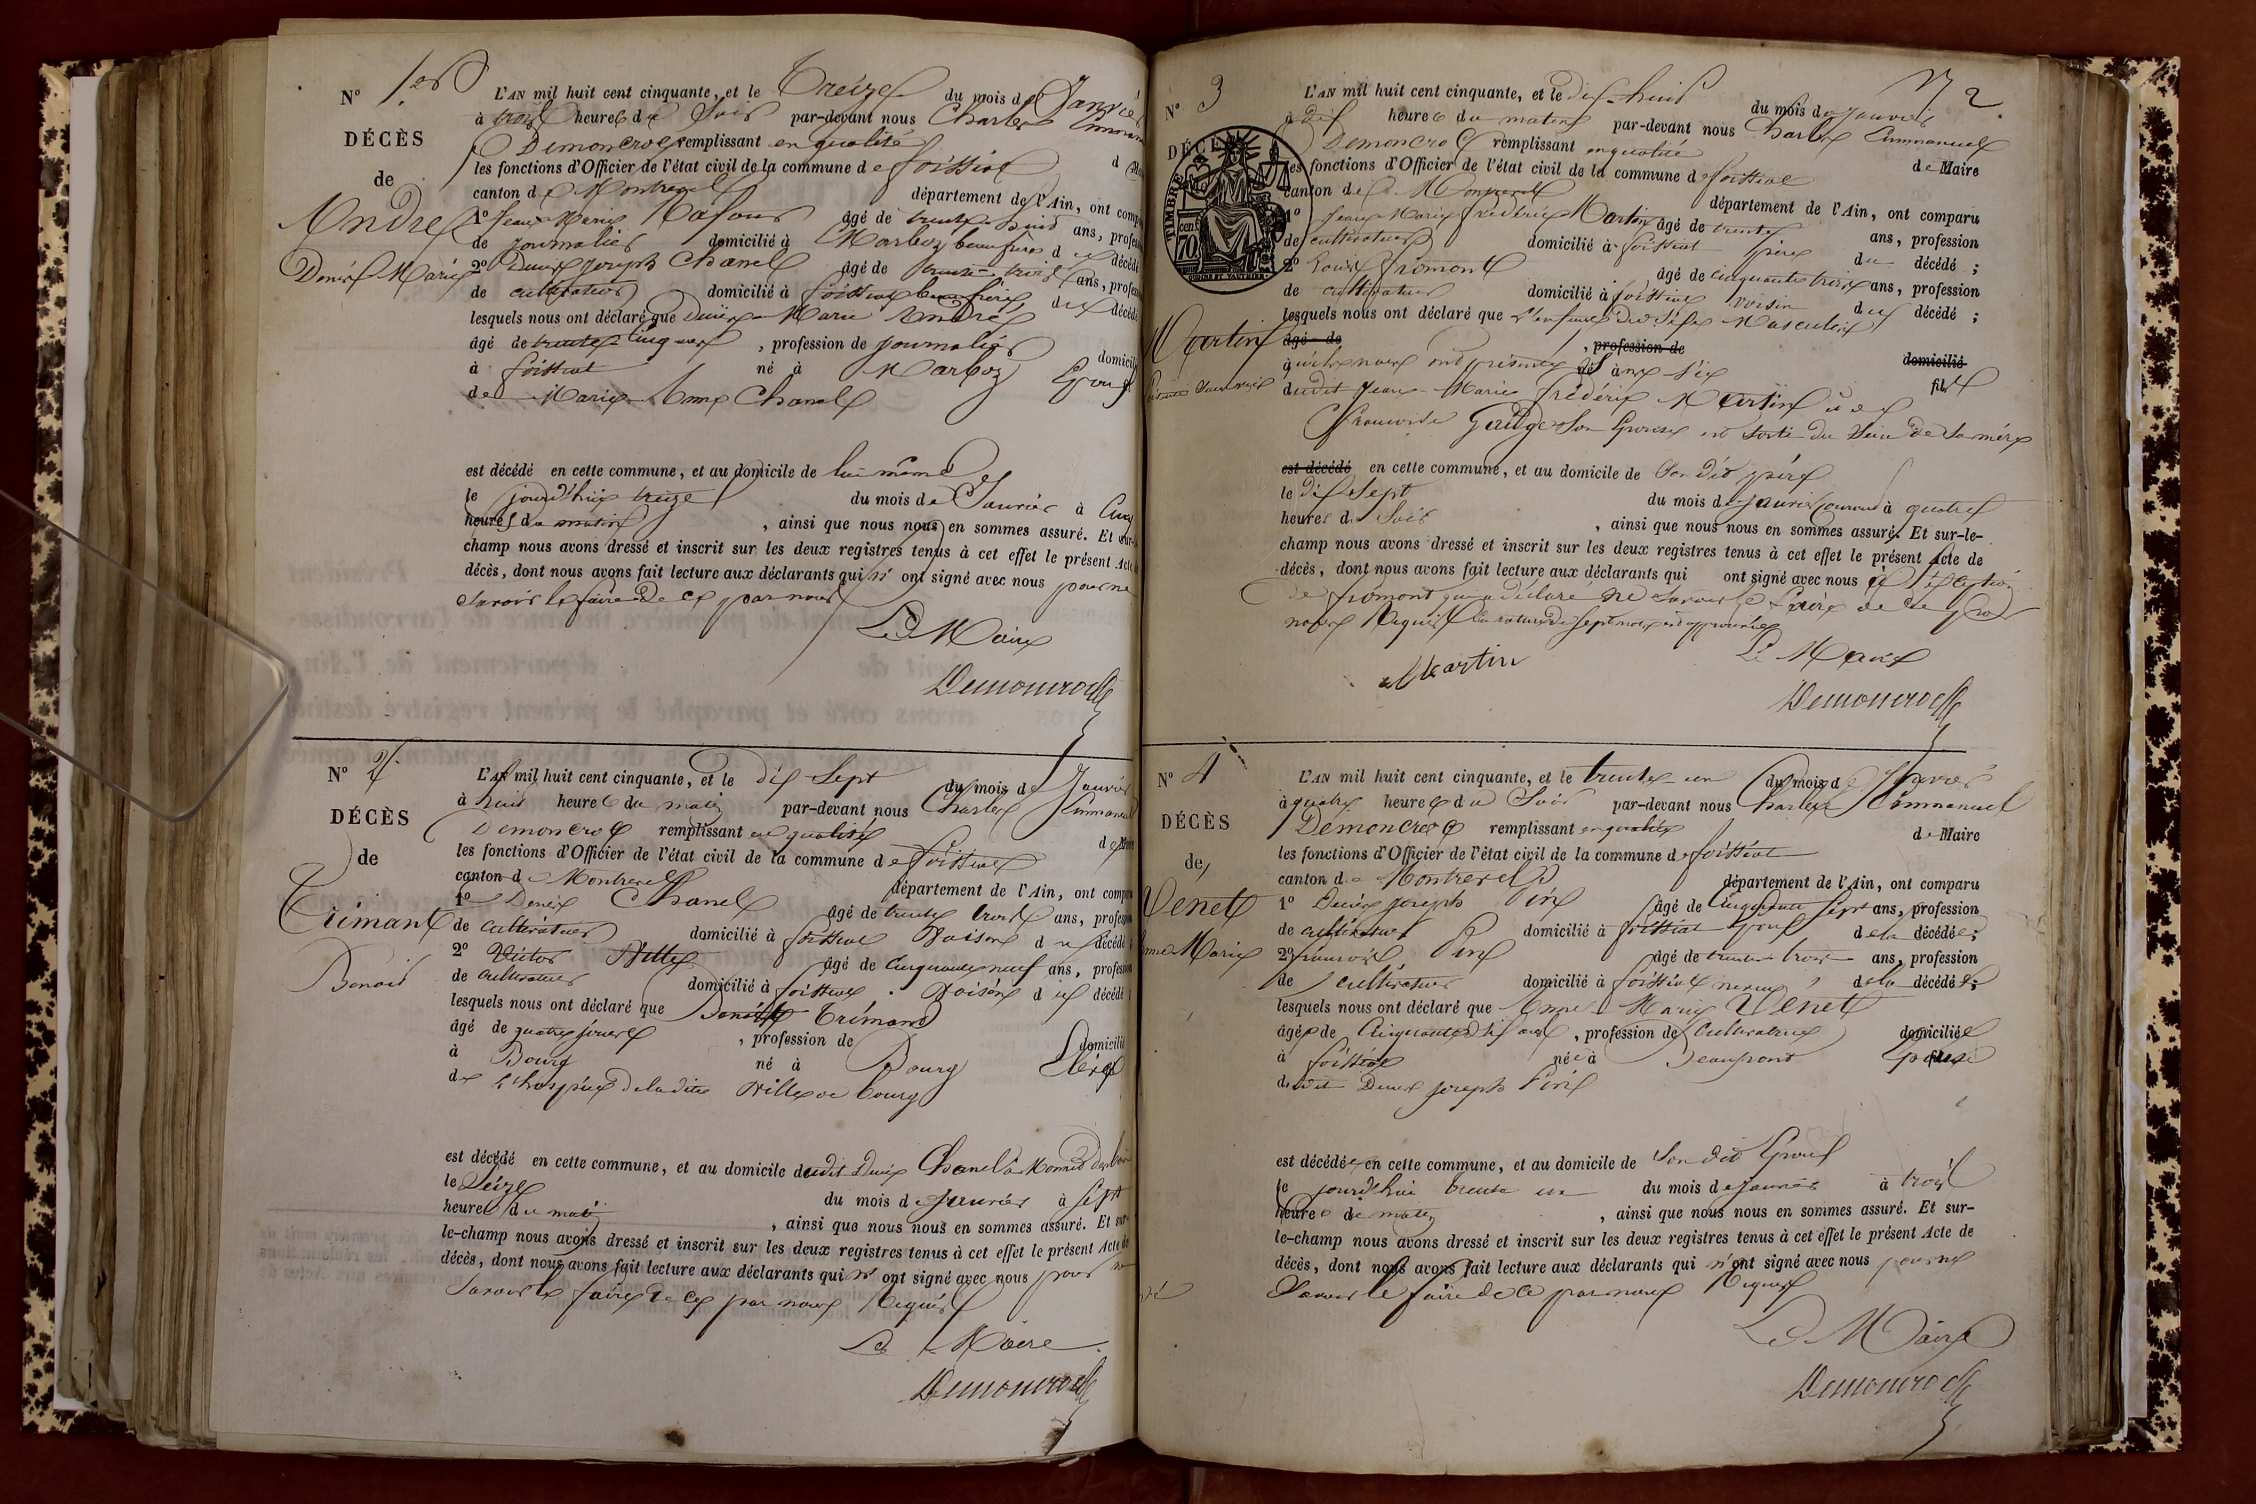 N° 1er
DÉCÈS
de
André
Denis Marie
L'AN mil huit cent cinquante, et le Treize du mois de Janvier
à trois heures du Soir par-devant nous Charles Emmanuel
Demoncroc remplissant en qualité
les fonctions d'Officier de l'état civil de la commune de foissiat
canton de Montrevel département de l'Ain, ont comparu
1° Jean Marie âgé de trente huit ans, profession
de journalier domicilié à Marboz beau frère du décédé
2° Denis Joseph Chanel âgé de trente trois ans, profession
de cultivateur domicilié à foissiat beau frère du décédé
lesquels nous ont déclaré que Denis Marie André
âgé de trente cinq ans, profession de journalier domicilié
à foissiat né à Marboz Epoux
de Marie Anne Chanel
est décédé en cette commune, et au domicile de lui même
le jourd'hui treize du mois de Janvier à Cinq
heures du matin, ainsi que nous nous en sommes assuré. Et sur-le-
champ nous avons dressé et inscrit sur les deux registres tenus à cet effet le présent Acte de
décès, dont nous avons fait lecture aux déclarants qui n'ont signé avec nous pour ne
Savoir le faire de ce par nous
Le Maire
Demoncroc
N° 2
DÉCÈS
de
Trémant
Benoit
L'AN mil huit cent cinquante, et le dix Sept du mois de Janvier
à huit heures du matin par-devant nous Charles Emmanuel
Demoncroc remplissant en qualité de Maire
les fonctions d'Officier de l'état civil de la commune de foissiat
canton de Montrevel département de l'Ain, ont comparu
1° Denis Chanel âgé de trente trois ans, profession
de cultivateur domicilié à foissiat Voisin du décédé
2° Victor âgé de Cinquante neuf ans, profession
de cultivateur domicilié à foissiat Voisin du décédé
lesquels nous ont déclaré que Benoit Trémant
âgé de quatre jours, profession de domicilié
à Bourg né à Bourg Elève
de l'hospice de la dite Ville de bourg
est décédé en cette commune, et au domicile dudit Denis Chanel
le Seize du mois de janvier à Sept
heures du matin, ainsi que nous nous en sommes assuré. Et sur-
le-champ nous avons dressé et inscrit sur les deux registres tenus à cet effet le présent Acte de
décès, dont nous avons fait lecture aux déclarants qui n'ont signé avec nous pour ne
Savoir le faire de ce par nous Requis
Le Maire
Demoncroc
2
N° 3
DÉCÈS
TIMBRE
70 cent
Martin
L'AN mil huit cent cinquante, et le dix-huit du mois de Janvier
à dix heures du matin par-devant nous Charles Emmanuel
Demoncroc remplissant en qualité de Maire
les fonctions d'Officier de l'état civil de la commune de foissiat
canton de Montrevel département de l'Ain, ont comparu
1° Jean Marie frédéric Martin âgé de trente ans, profession
de cultivateur domicilié à foissiat père du décédé ;
2° Louis fromont âgé de cinquante trois ans, profession
de cultivateur domicilié à foissiat voisin du décédé ;
lesquels nous ont déclaré que l'enfant du Sexe Masculin
âgé de, profession de domicilié
qu'ils nous ont présenté fils
dudit Jean Marie frédéric Martin et de
Son Epouse est sorti du Sein de Sa mère
est décédé en cette commune, et au domicile de Son dit père
le dix Sept du mois de Janvier courant à quatre
heures du Soir, ainsi que nous nous en sommes assuré. Et sur-le-
champ nous avons dressé et inscrit sur les deux registres tenus à cet effet le présent Acte de
décès, dont nous avons fait lecture aux déclarants qui ont signé avec nous à l'exception
de fromont qui a déclaré ne Savoir le faire de ce par
nous Requis La rature de Sept mots est approuvée
Martin
Le Maire
Demoncroc
N° 4
DÉCÈS
de
Venet
Anne Marie
L'AN mil huit cent cinquante, et le trente un du mois de Janvier
à quatre heures du Soir par-devant nous Charles Emmanuel
Demoncroc remplissant en qualité de Maire
les fonctions d'Officier de l'état civil de la commune de foissiat
canton de Montrevel département de l'Ain, ont comparu
1° Denis Joseph Pin âgé de Cinquante Sept ans, profession
de cultivateur domicilié à foissiat Epoux de la décédée ;
2° françois Pin âgé de trente trois ans, profession
de cultivateur domicilié à foissiat neveu de la décédée ;
lesquels nous ont déclaré que Anne Marie Venet
âgée de Cinquante Six ans, profession de Cultivatrice domiciliée
à foissiat née à Beaupont Epouse
dudit Denis Joseph Pin
est décédée en cette commune, et au domicile de Son dit Epoux
le jourd'hui trente un du mois de janvier à trois
heures du matin, ainsi que nous nous en sommes assuré. Et sur-
le-champ nous avons dressé et inscrit sur les deux registres tenus à cet effet le présent Acte de
décès, dont nous avons fait lecture aux déclarants qui n'ont signé avec nous pour ne
Savoir le faire de ce par nous Requis
Le Maire
Demoncroc